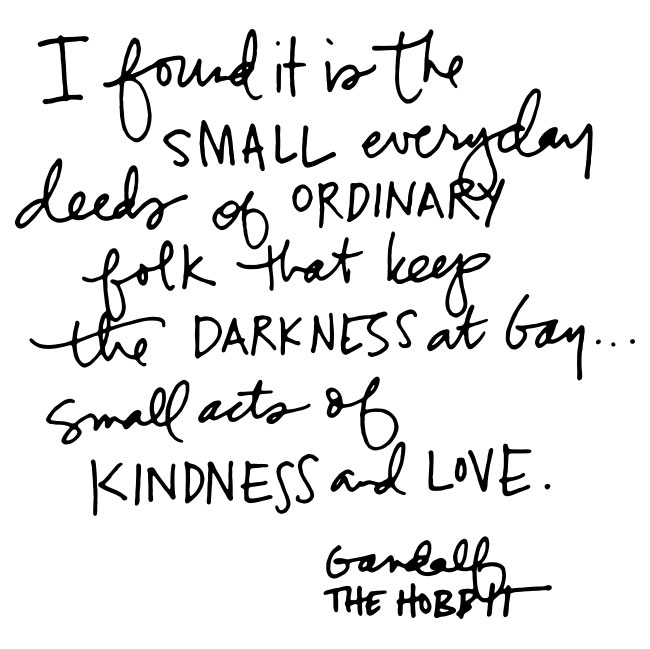 I found it is the
SMALL everyday
deeds of ORDINARY
folk that keep
the DARKNESS at bay...
small acts of
KINDNESS and LOVE.
Gandalf
THE HOBBIT